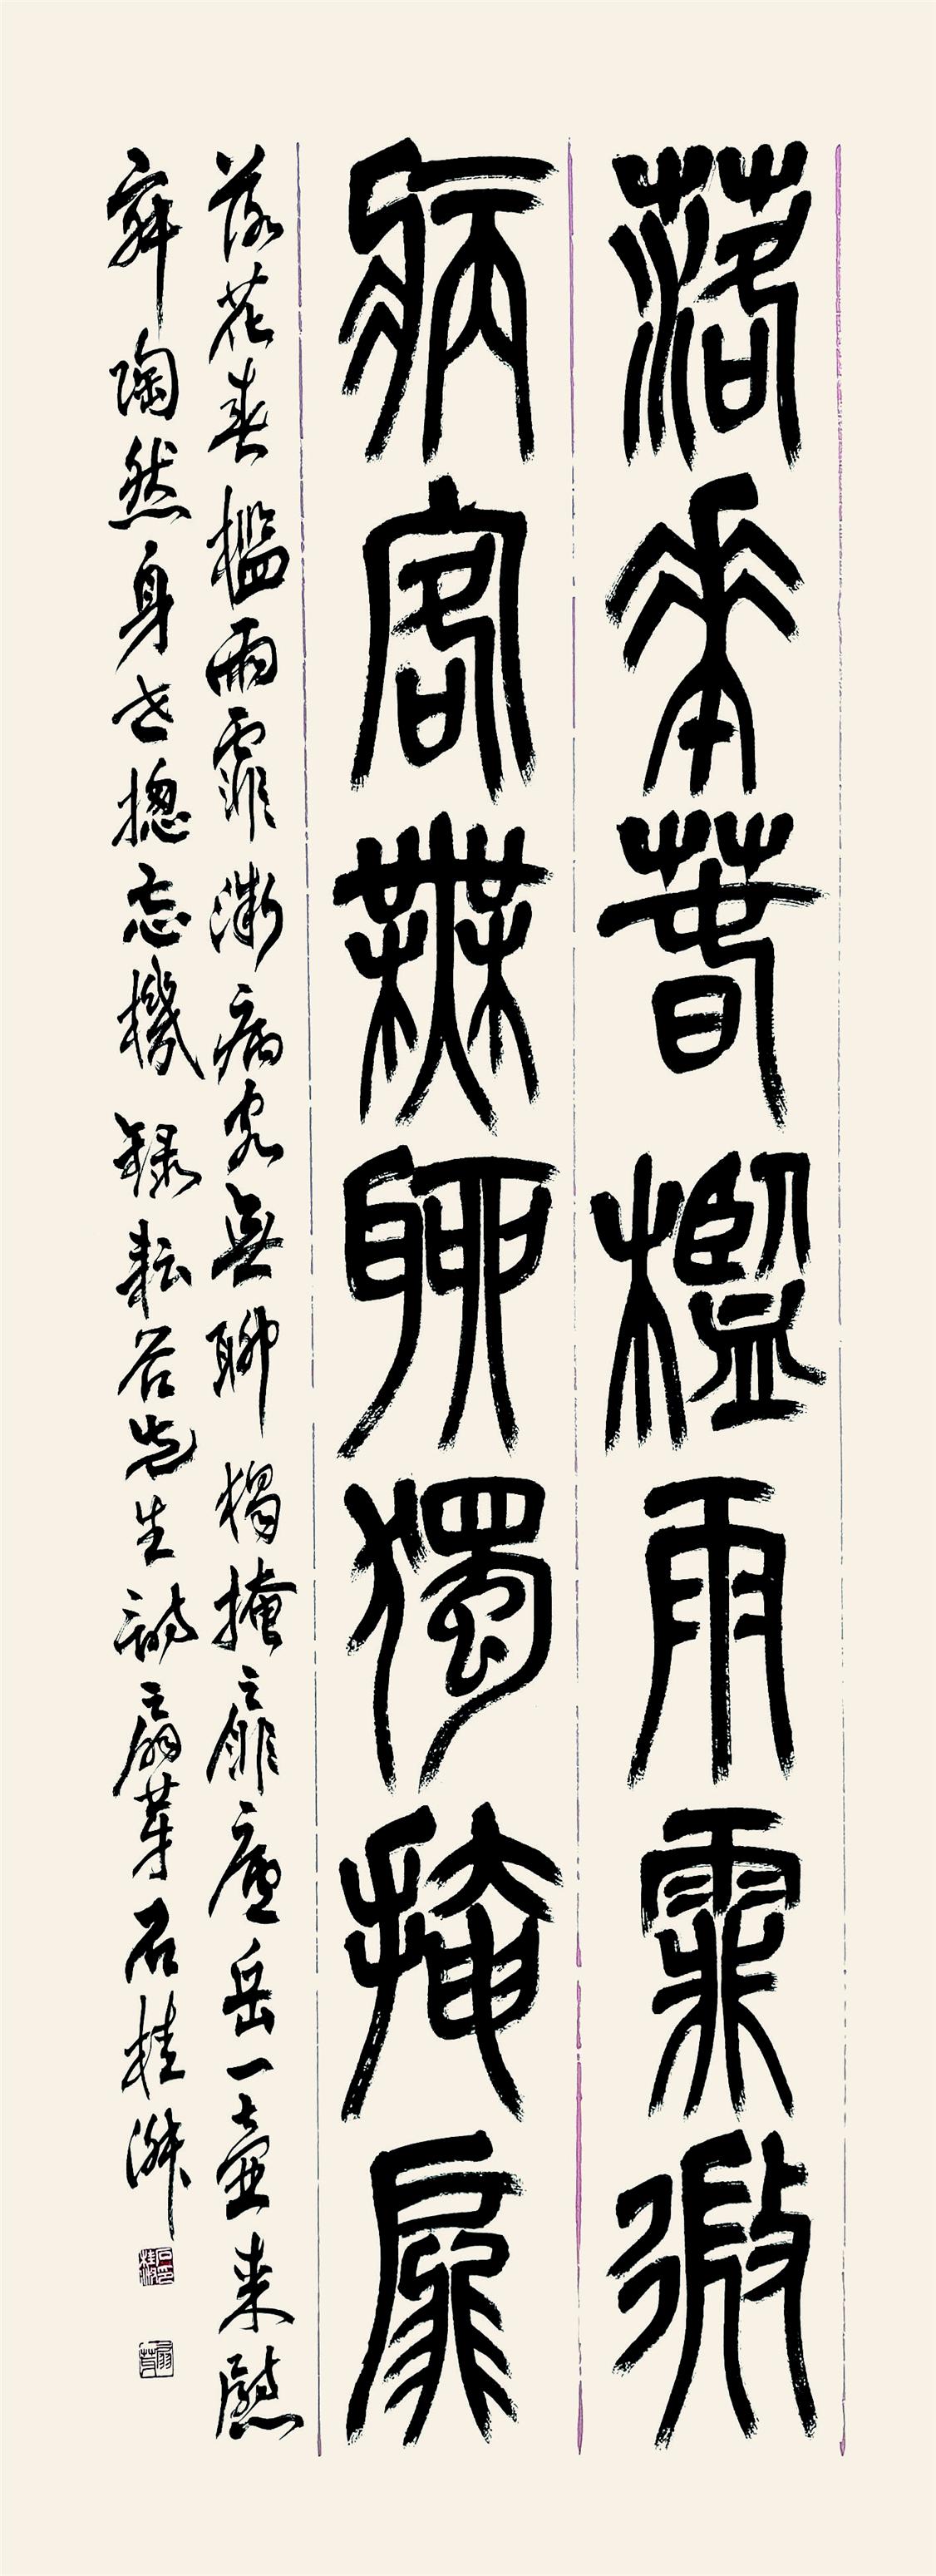 落花春檻雨霏微
病客無聊獨掩扉
落花春檻雨霏微病客無聊獨掩扉廬岳一壺來慰
寂陶然身世揔忘機 錄耘谷先生詩扇芽石桂洲